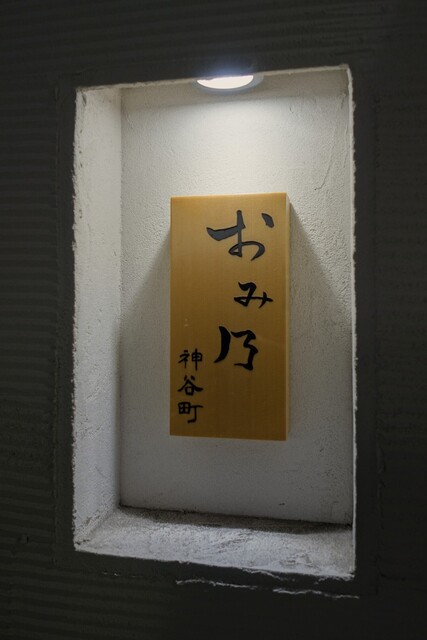 おみ乃
神谷町